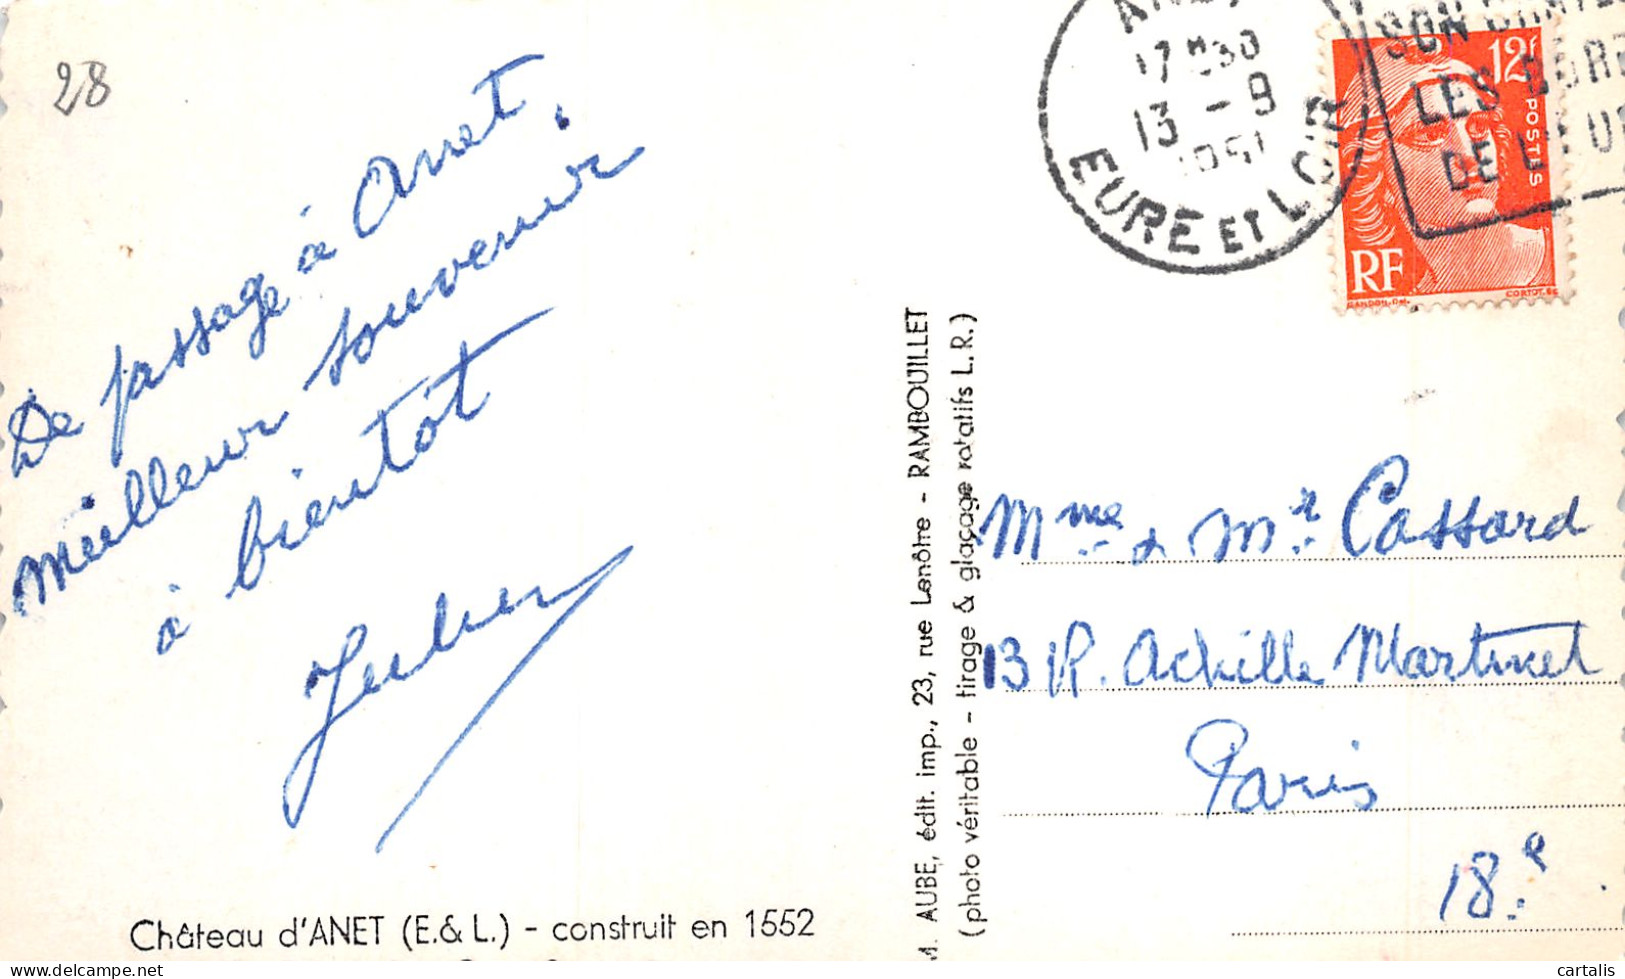 28
De passage à Anet,
meilleur souvenir
à bientôt
Château d'ANET (E.& L.) - construit en 1552
M. AUBE, édit. imp., 23, rue Lenôtre - RAMBOUILLET
(photo véritable - tirage & glaçage rotatifs L.R.)
17H30
13 - 9
1951
EURE ET LOIR
SON
LES BORD
DE L'EU
12F
POSTES
RF
GANDON.DEL.
CORTOT.SC
Mme & Mr Cassard
13 R. Achille Martinet
Paris
18e
cartalis